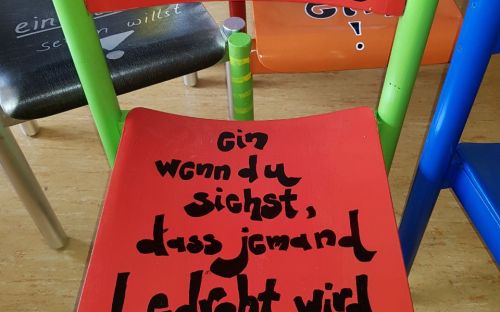 ein
willst
!
ein
wenn du
siehst,
dass jemand
bedroht wird